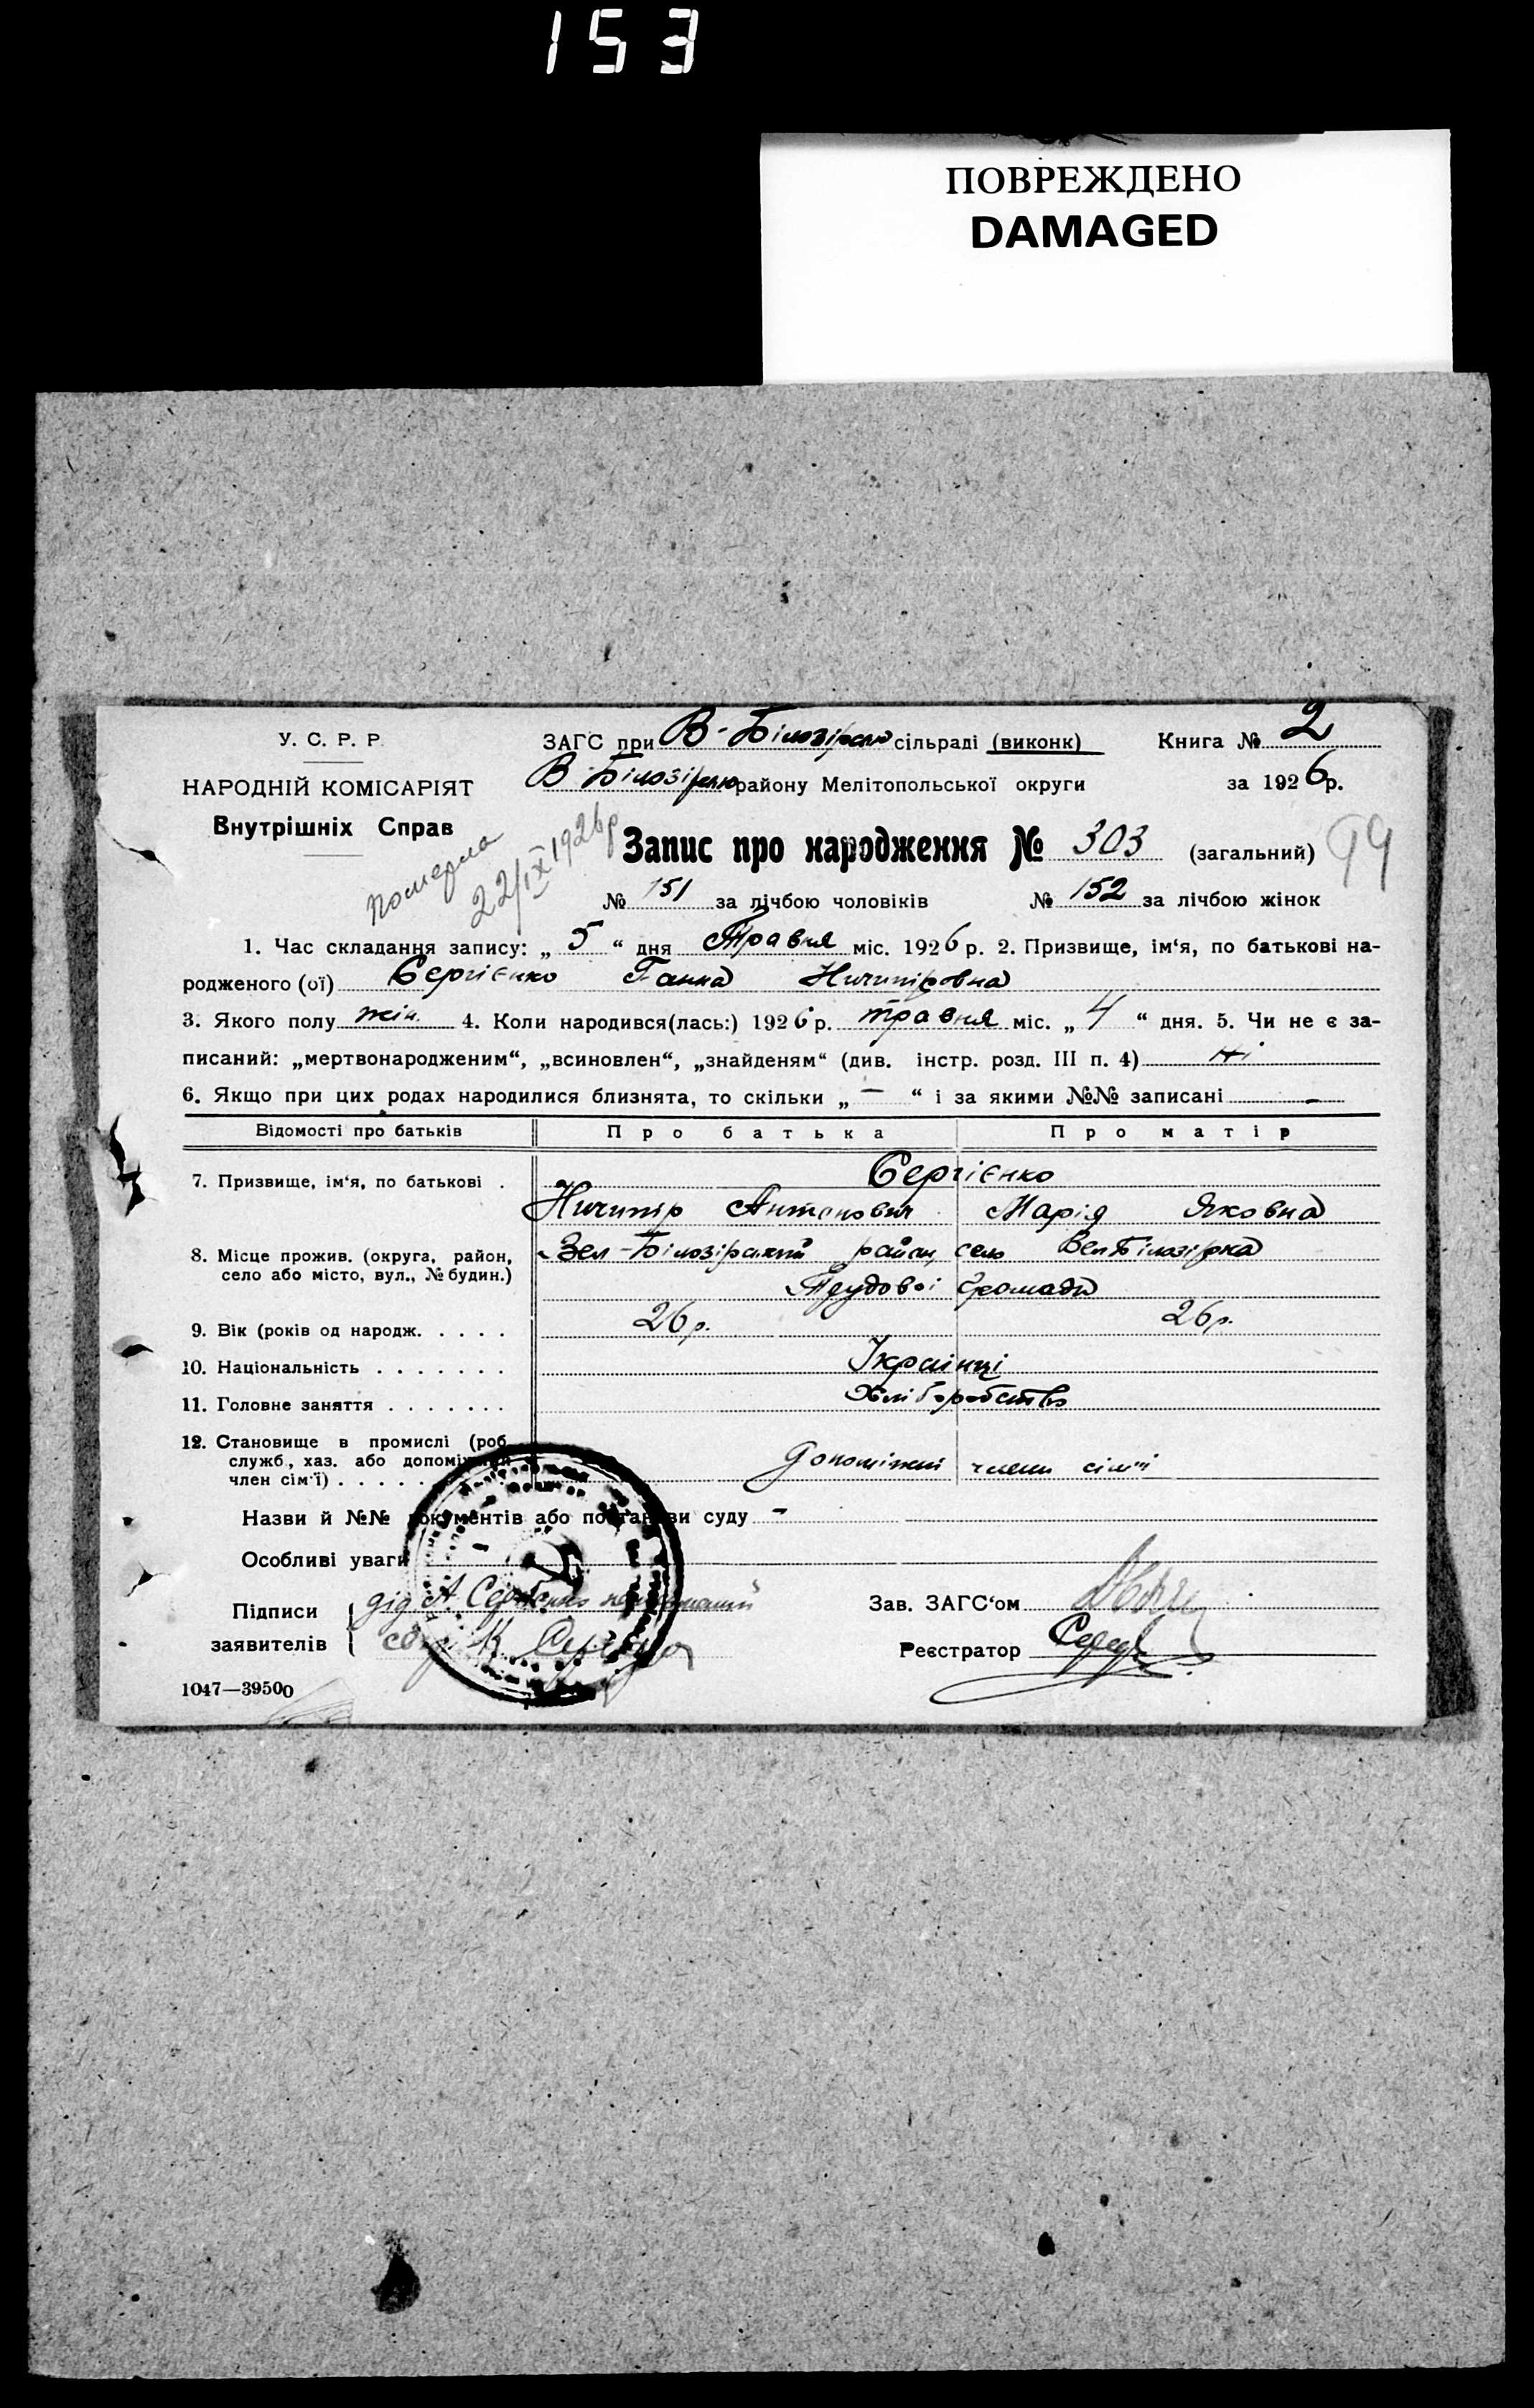 153
ПОВРЕЖДЕНО
DAMAGED
У. С. Р. Р.
НАРОДНІЙ КОМІСАРІЯТ
Внутрішніх Справ
ЗАГС при В-Білозірськ сільраді (виконк)
В Білозірськ району Мелітопольської округи
Книга № 2
за 1926 р.
померла
22/IX 1926 р
Запис про народження № 303 (загальний)
99
№ 151 за лічбою чоловіків № 152 за лічбою жінок
1. Час складання запису: „ 5 “ дня Травня міс. 1926 р. 2. Призвище, ім‘я, по батькові на-
родженого (ої) Сергієнко Ганна Ничипіровна
3. Якого полу жін. 4. Коли народився(лась:) 1926 р. травня міс. „ 4 “ дня. 5. Чи не є за-
писаний: „мертвонародженим“, „всиновлен“, „знайденям“ (див. інстр. розд. III п. 4) ні
6. Якщо при цих родах народилися близнята, то скільки „ — “ і за якими №№ записані —
Відомості про батьків Про батька Про матір
7. Призвище, ім‘я, по батькові . Сергієнко
Ничипір Антонович Марія Яковна
8. Місце прожив. (округа, район,
село або місто, вул., № будин.)
Вел-Білозірський район, село Вел Білозірка
Трудової громади
9. Вік (років од народж. . . . . 26 р. 26 р.
10. Національність . . . . . . . Українці
11. Головне заняття . . . . . . . Хліборобство
12. Становище в промислі (роб.
служб., хаз. або допоміжний
член сім‘ї) . . . . . Допоміжні члени сім'ї
Назви й №№ документів або постанови суду -
Особливі уваги
Підписи
заявителів
дід А. Сергієнко
Зав. ЗАГС‘ом
Реєстратор
1047—39500